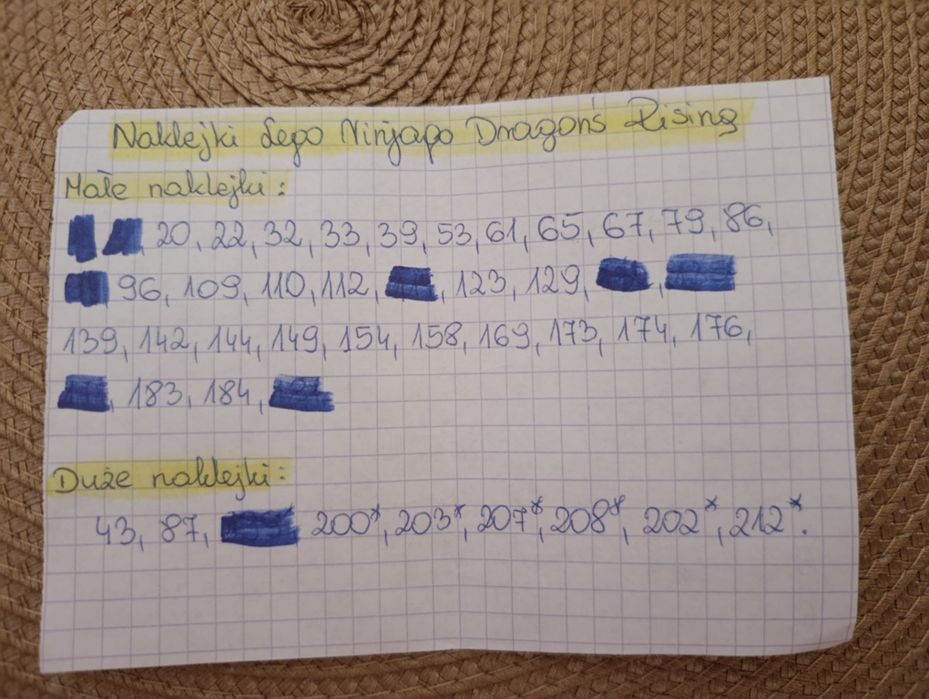 Naklejki Lego Ninjago Dragons Rising
Małe naklejki:
20, 22, 32, 33, 39, 53, 61, 65, 67, 79, 86,
96, 109, 110, 112, 123, 129,
139, 142, 144, 149, 154, 158, 169, 173, 174, 176,
183, 184,
Duże naklejki:
43, 87, 200*, 203*, 207*, 208*, 202*, 212*.